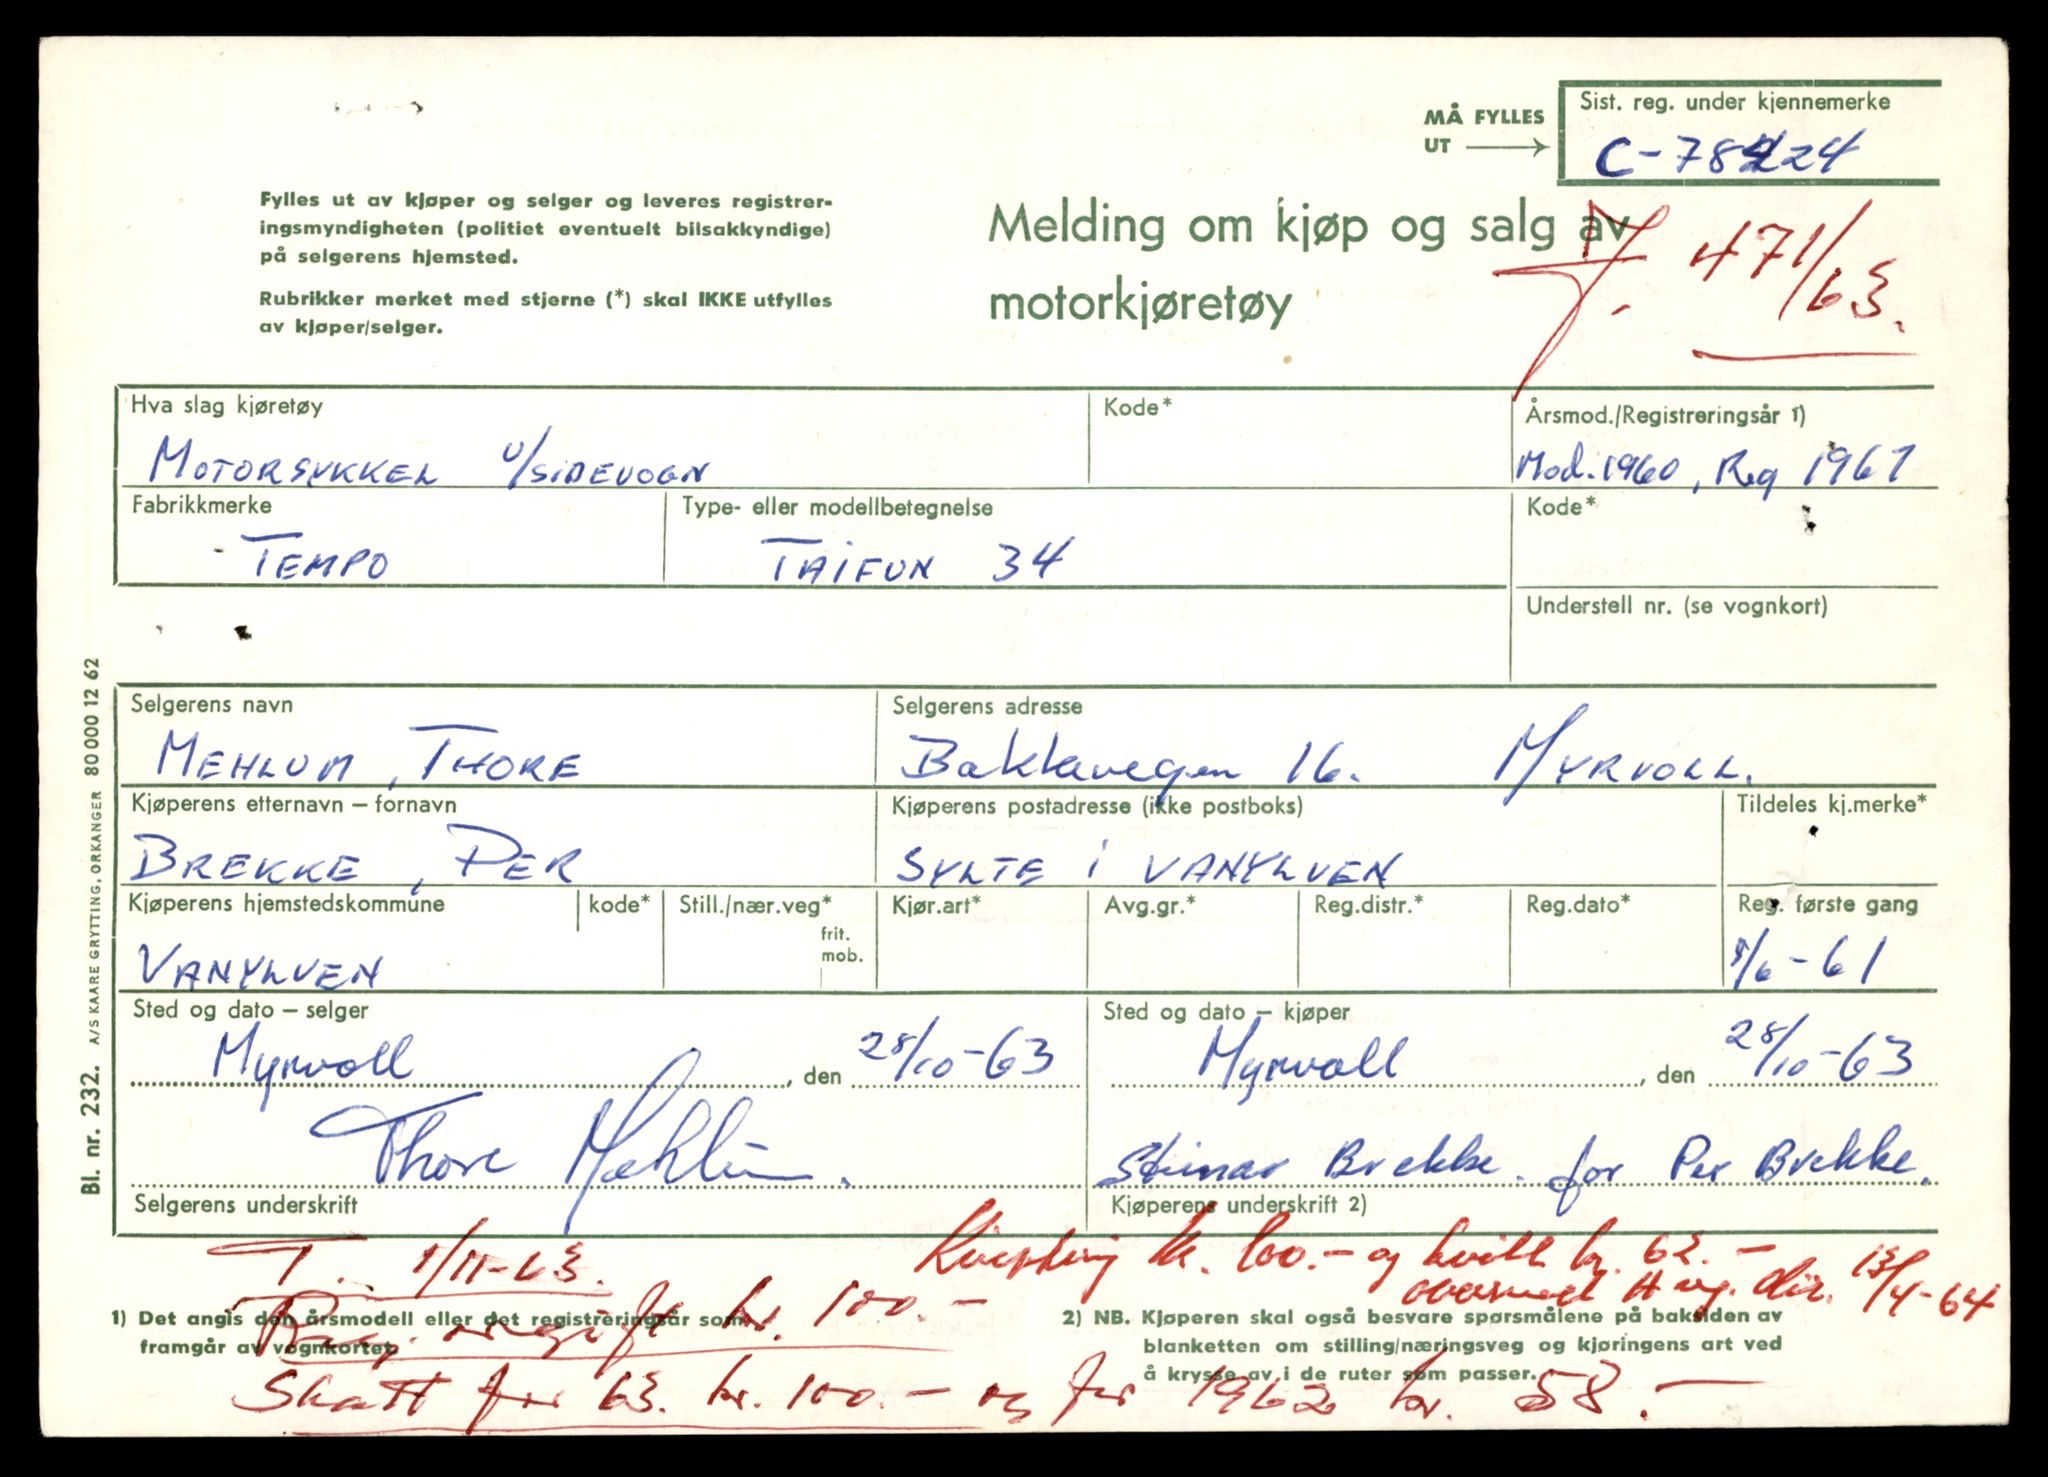 MÅ FYLLES
UT
Sist. reg. under kjennemerke
C-78224
Fylles ut av kjøper og selger og leveres registrer-
ingsmyndigheten (politiet eventuelt bilsakkyndige)
på selgerens hjemsted.
Rubrikker merket med stjerne (*) skal IKKE utfylles
av kjøper/selger.
Melding om kjøp og salg av
motorkjøretøy
J. 471/63.
Hva slag kjøretøy
Kode*
Årsmod./Registreringsår 1)
MOTORSYKKEL U/SIDEVOGN
Mod. 1960, Reg 1961
Fabrikkmerke
Type- eller modellbetegnelse
Kode*
TEMPO
TAIFUN 34
Understell nr. (se vognkort)
Selgerens navn
Selgerens adresse
MEHLUM, THORE
Bakkevegen 16. MYRVOLL.
Kjøperens etternavn – fornavn
Kjøperens postadresse (ikke postboks)
Tildeles kj.merke*
BREKKE, PER
SYLTE i VANYLVEN
Kjøperens hjemstedskommune
kode*
Still./nær.veg*
frit.
mob.
Kjør.art*
Avg.gr.*
Reg.distr.*
Reg.dato*
Reg. første gang
VANYLVEN
/6-61
Sted og dato – selger
Sted og dato – kjøper
Myrvoll, den 28/10-63
Myrvoll, den 28/10-63
Thore Mehlum.
Steinar Brekke. for Per Brekke.
Selgerens underskrift
Kjøperens underskrift 2)
T. 1/11-63.
kr. 100.- og kvitt kr. 62.-
13/4-64
Reg. avgift kr. 100.-
1) Det angis den årsmodell eller det registreringsår som
framgår av vognkortet
2) NB. Kjøperen skal også besvare spørsmålene på baksiden av
blanketten om stilling/næringsveg og kjøringens art ved
å krysse av i de ruter som passer.
Skatt for 63. kr. 100.- og for 1962 kr. 58.-
Bl. nr. 232. A/S KAARE GRYTTING, ORKANGER 80 000 12 62